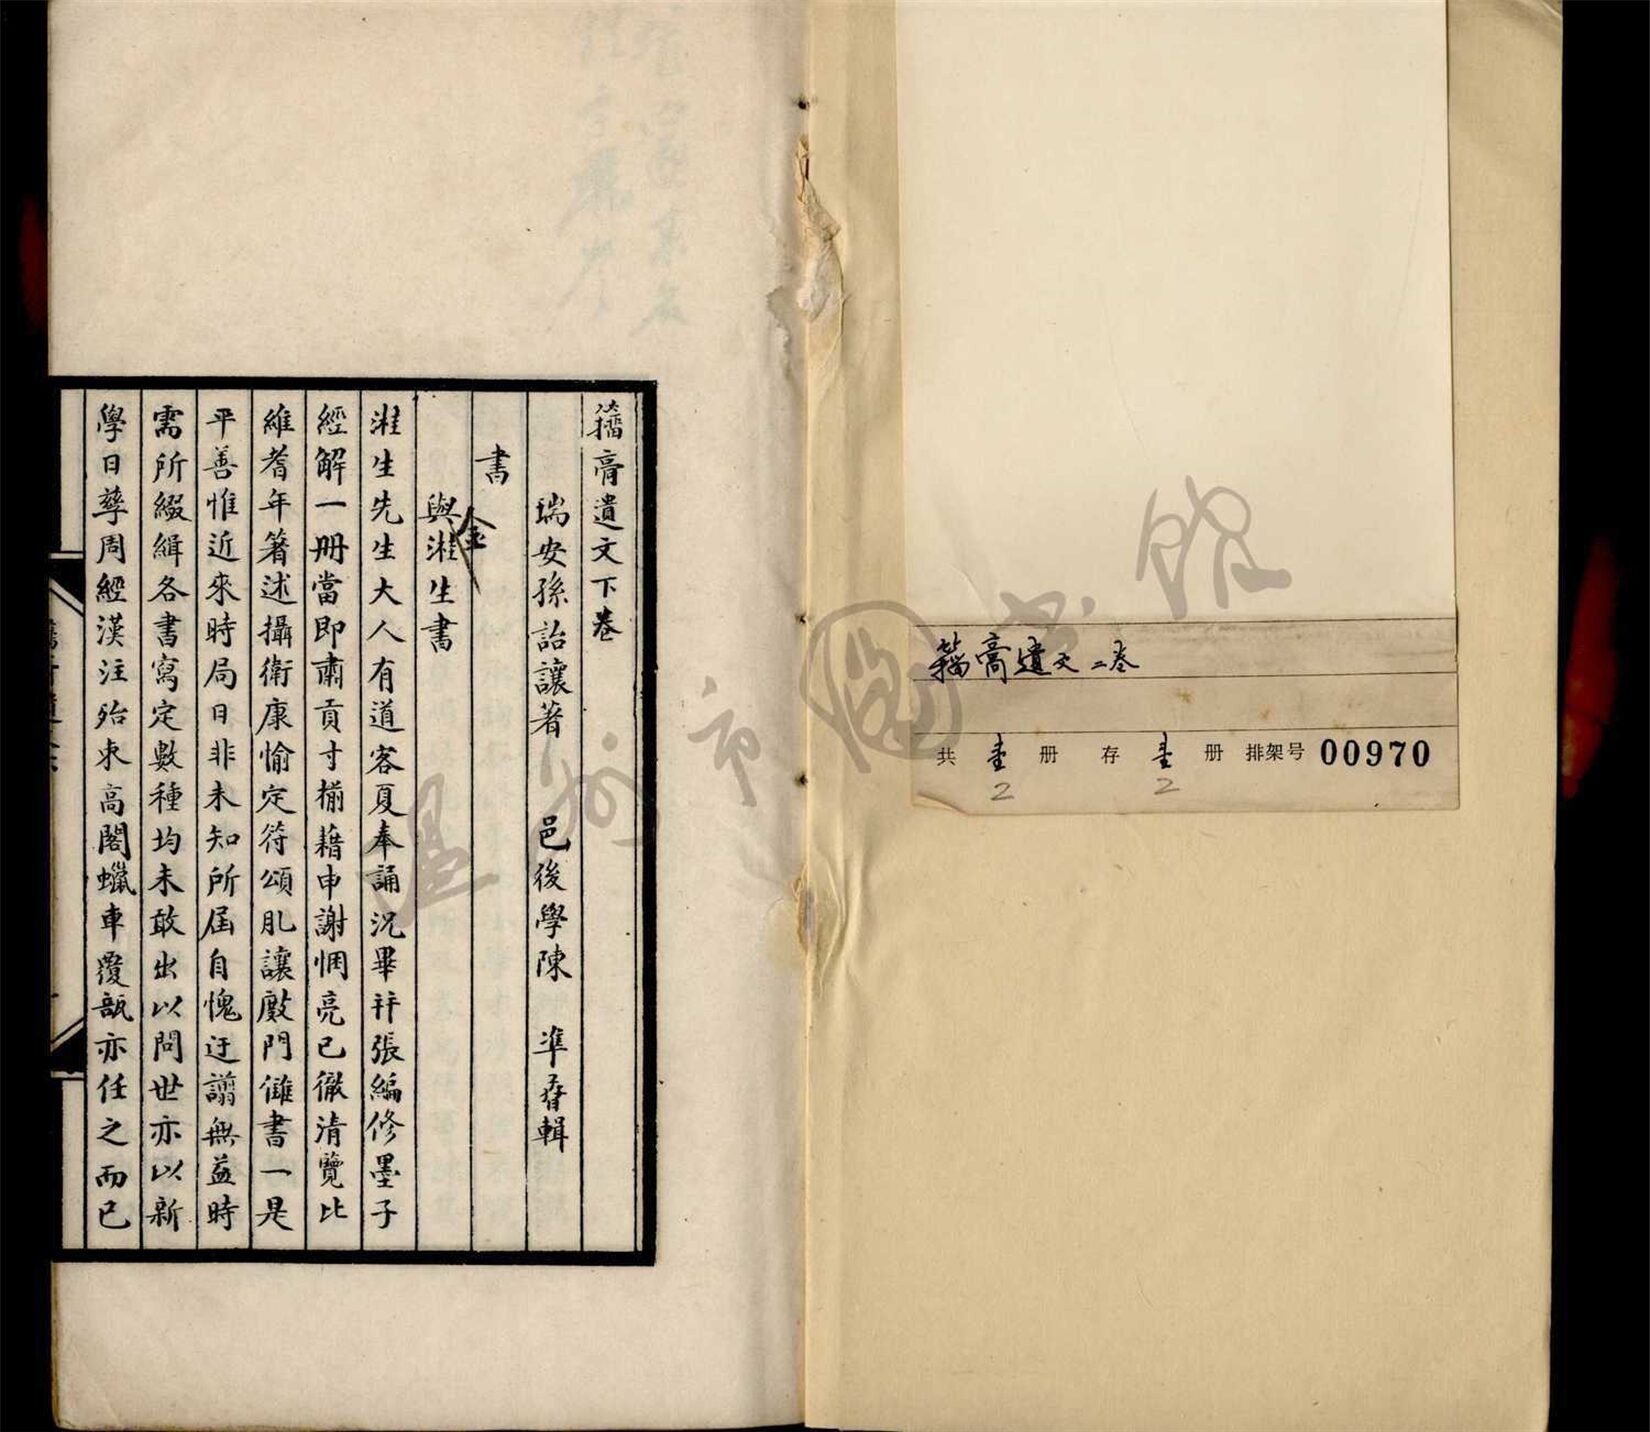 籀膏遺文二卷
共 壹 册 存 壹 册 排架号 00970
2 2
籀膏遺文下卷
瑞安孫詒讓著 邑後學陳 準春輯
書
與淮生書
金
淮生先生大人有道客夏奉誦況畢幷張編修墨子
經解一册當即肅貢寸楮藉申謝悃亮已徹清覽比
維耆年箸述攝衛康愉定符頌肊讓敿門讎書一是
平善惟近來時局日非未知所屆自愧迂謭無益時
需所綴緝各書寫定數種均未敢出以問世亦以新
學日孳周經漢注殆束高閣蠟車覆瓿亦任之而已
溫州市圖書館